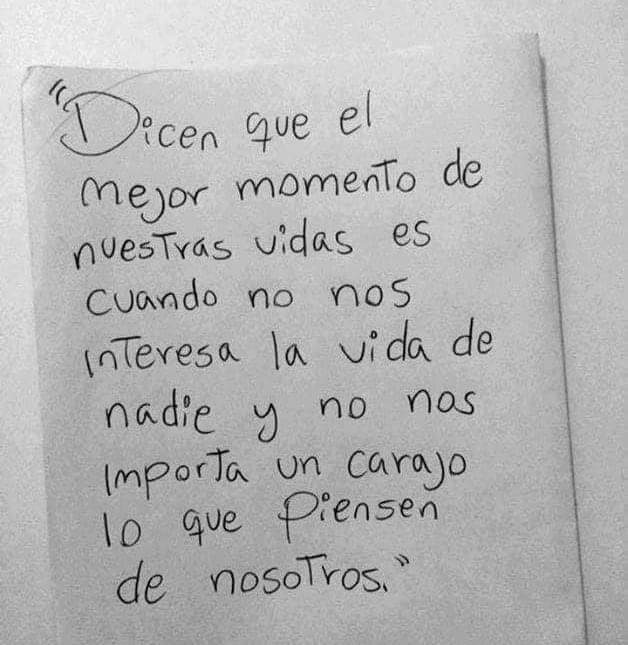 "Dicen que el
mejor momento de
nuestras vidas es
cuando no nos
interesa la vida de
nadie y no nos
importa un carajo
lo que piensen
de nosotros."